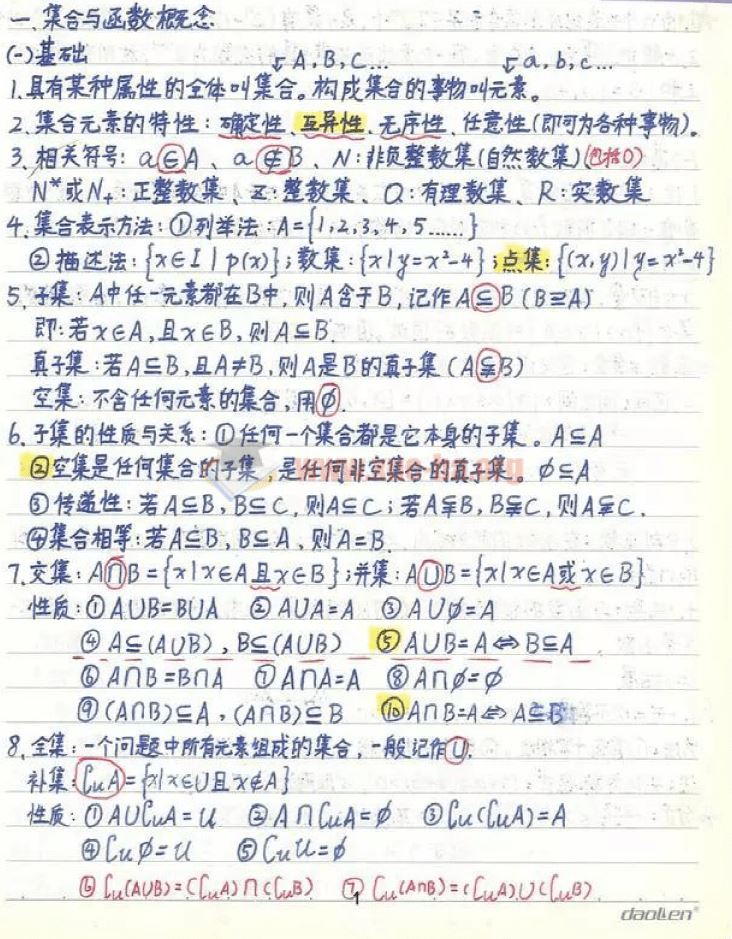 一、集合与函数概念
(一)基础 ↙A,B,C… ↙a,b,c…
1.具有某种属性的全体叫集合。构成集合的事物叫元素。
2.集合元素的特性:确定性、互异性、无序性、任意性(即可为各种事物)。
3.相关符号:a∈A、a∉B、N:非负整数集(自然数集)(包括0)
N*或N₊:正整数集、Z:整数集、Q:有理数集、R:实数集
4.集合表示方法:①列举法:A={1,2,3,4,5……}
②描述法:{x∈I|p(x)};数集:{x|y=x²-4};点集:{(x,y)|y=x²-4}
5.子集:A中任一元素都在B中,则A含于B,记作A⊆B(B⊇A)
即:若x∈A,且x∈B,则A⊆B.
真子集:若A⊆B,且A≠B,则A是B的真子集(A⫋B)
空集:不含任何元素的集合,用∅.
6.子集的性质与关系:①任何一个集合都是它本身的子集。A⊆A
②空集是任何集合的子集,是任何非空集合的真子集。∅⊆A
③传递性:若A⊆B,B⊆C,则A⊆C;若A⫋B,B⫋C,则A⫋C.
④集合相等:若A⊆B,B⊆A,则A=B.
7.交集:A∩B={x|x∈A且x∈B};并集:A∪B={x|x∈A或x∈B}
性质:①A∪B=B∪A ②A∪A=A ③A∪∅=A
④A⊆(A∪B),B⊆(A∪B) ⑤A∪B=A⇔B⊆A
⑥A∩B=B∩A ⑦A∩A=A ⑧A∩∅=∅
⑨(A∩B)⊆A,(A∩B)⊆B ⑩A∩B=A⇔A⊆B
8.全集:一个问题中所有元素组成的集合,一般记作U.
补集:∁uA={x|x∈U且x∉A}
性质:①A∪∁uA=U ②A∩∁uA=∅ ③∁u(∁uA)=A
④∁u∅=U ⑤∁uU=∅
⑥∁u(A∪B)=(∁uA)∩(∁uB) ⑦∁u(A∩B)=(∁uA)∪(∁uB)
1
daoLen®